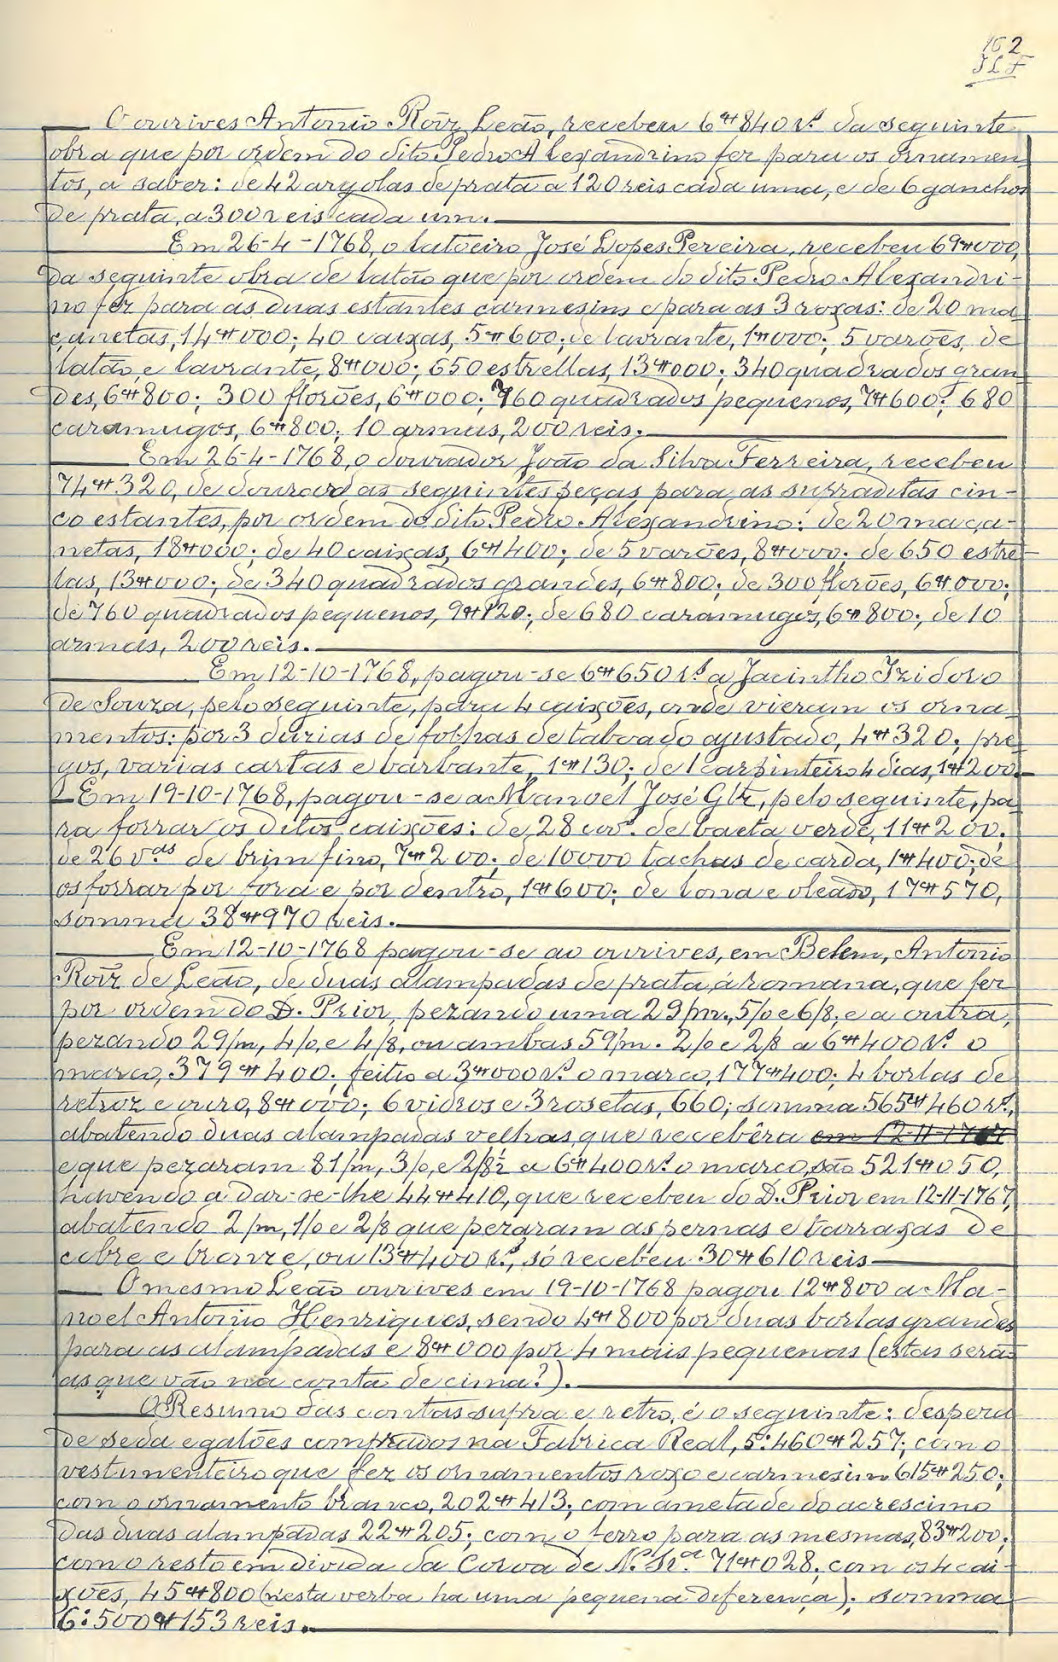 162
JLF
O ourives Antonio Roiz Leão, recebeu 6$840 rs. da seguinte
obra que por ordem do dito Pedro Alexandrino fez para os ornamen-
tos, a saber: de 42 argolas de prata a 120 reis cada uma, e de 6 ganchos
de prata, a 300 reis cada um.
Em 26-4-1768, o latoeiro José Lopes Pereira, recebeu 69$000,
da seguinte obra de latão que por ordem do dito Pedro Alexandri-
no fez para as duas estantes carmesins e para as 3 roxas: de 20 ma-
çanetas, 14$000; 40 caixas, 5$600; de lavrante, 1$000; 5 varões, de
latão, e lavrante, 8$000; 650 estrellas, 13$000; 340 quadrados gran-
des, 6$800; 300 florões, 6$000; 760 quadrados pequenos, 7$600; 680
caramugos, 6$800; 10 armas, 200 reis.
Em 26-4-1768, o dourador João da Silva Ferreira, recebeu
74$320, de dourar as seguintes peças para as supraditas cin-
co estantes, por ordem do dito Pedro Alexandrino: de 20 maça-
netas, 18$000; de 40 caixas, 6$400; de 5 varões, 8$000; de 650 estre-
las, 13$000; de 340 quadrados grandes, 6$800; de 300 florões, 6$000;
de 760 quadrados pequenos, 9$120; de 680 caramugos, 6$800; de 10
armas, 200 reis.
Em 12-10-1768, pagou-se 6$650 rs. a Jacintho Izidoro
de Souza, pelo seguinte, para 4 caixões, onde vieram os orna-
mentos: por 3 duzias de folhas de taboado ajustado, 4$320; pre-
gos, varias cartas e barbante, 1$130; de 1 carpinteiro 4 dias, 1$200.
Em 19-10-1768, pagou-se a Manoel José Glz, pelo seguinte, pa-
ra forrar os ditos caixões: de 28 cov.s de baeta verde, 11$200;
de 26 v.as de brim fino, 7$200; de 10000 tachas de carda, 1$400; de
os forrar por fora e por dentro, 1$600; de lona e oleado, 17$570,
somma 38$970 reis.
Em 12-10-1768 pagou-se ao ourives, em Belem, Antonio
Roiz de Leão, de duas alampadas de prata, á romana, que fez
por ordem do D. Prior, pezando uma 29/m., 5/o e 6/8, e a outra,
pezando 29/m, 4/o, e 4/8, ou ambas 59/m. 2/o e 2/8 a 6$400 rs. o
marco, 379$400; feitio a 3$000 rs. o marco, 177$400; 4 borlas de
retroz e ouro, 8$000; 6 vidros e 3 rosetas, 660; somma 565$460 rs.,
abatendo duas alampadas velhas, que recebêra em 12-11-1767
e que pezaram 81/m, 3/o, e 2/8½ a 6$400 rs. o marco, são 521$050,
havendo a dar-se-lhe 44$410, que recebeu do D. Prior em 12-11-1767,
abatendo 2/m, 1/o e 2/8 que pezaram as pernas e tarraxas de
cobre e bronze, ou 13$400 rs., só recebeu 30$610 reis
O mesmo Leão ourives em 19-10-1768 pagou 12$800 a Ma-
noel Antonio Henriques, sendo 4$800 por duas borlas grandes
para as alampadas e 8$000 por 4 mais pequenas (estas serão
as que vão na conta de cima?).
O Resumo das contas supra e retro, é o seguinte: despeza
de seda e galões comprados na Fabrica Real, 5:460$257; com o
vestimenteiro que fez os ornamentos roxo e carmesim 615$250;
com o ornamento branco, 202$413; com ametade do acrescimo
das duas alampadas 22$205; com o ferro para as mesmas, 83$200;
com o resto em divida da Coroa de N. Sr.a 71$028; com os 4 cai-
xões, 45$800 (nesta verba ha uma pequena diferença); somma
6:500$153 reis.